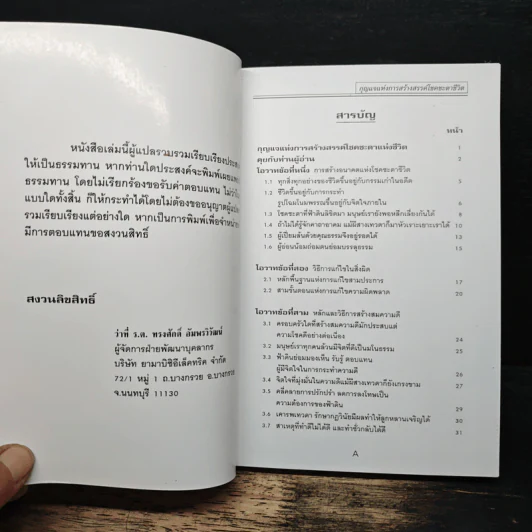 หนังสือเล่มนี้ผู้แปลรวบรวมเรียบเรียงประสงค์
ให้เป็นธรรมทาน หากท่านใดประสงค์จะพิมพ์เผยแพร่
ธรรมทาน โดยไม่เรียกร้องขอรับค่าตอบแทน ไม่ว่าใน
แบบใดทั้งสิ้น ก็ให้กระทำได้โดยไม่ต้องขออนุญาตผู้แปล
รวมเรียบเรียงแต่อย่างใด หากเป็นการพิมพ์เพื่อจำหน่าย
มีการตอบแทนขอสงวนสิทธิ์
สงวนลิขสิทธิ์
ว่าที่ ร.ต. ทรงศักดิ์ อัมพรวิวัฒน์
ผู้จัดการฝ่ายพัฒนาบุคลากร
บริษัท ยามาบิชิอีเล็คทริค จำกัด
72/1 หมู่ 1 ถ.บางกรวย อ.บางกรวย
จ.นนทบุรี 11130
กุญแจแห่งการสร้างสรรค์โชคชะตาชีวิต
สารบัญ
หน้า
กุญแจแห่งการสร้างสรรค์โชคชะตาแห่งชีวิต 1
คุยกับท่านผู้อ่าน 2
โอวาทข้อที่หนึ่ง การสร้างอนาคตแห่งโชคชะตาชีวิต
1.1 ทุกสิ่งทุกอย่างของชีวิตขึ้นอยู่กับกรรมเก่าในอดีต 5
1.2 ชีวิตขึ้นอยู่กับการกระทำ
รูปโฉมโนมพรรณขึ้นอยู่กับจิตใจภายใน 6
1.3 โชคชะตาที่ฟ้าดินลิขิตมา มนุษย์เรายังพอหลีกเลี่ยงกันได้ 8
1.4 ถ้าไม่ได้รู้จักคาถาอาคม แม้มีสางเทวดาก็มาหัวเราะเยาะเราได้ 10
1.5 ผู้เปี่ยมล้นด้วยคุณธรรมจึงอยู่รอดได้ 13
1.6 ผู้อ่อนน้อมถ่อมตนย่อมบรรลุธรรม 15
โอวาทข้อที่สอง วิธีการแก้ไขในสิ่งผิด
2.1 หลักพื้นฐานแห่งการแก้ไขสามประการ 17
2.2 สามขั้นตอนแห่งการแก้ไขความผิดพลาด 20
โอวาทข้อที่สาม หลักและวิธีการสร้างสมความดี
3.1 ครอบครัวใดที่สร้างสมความดีมักประสบแต่
ความโชคดีอย่างต่อเนื่อง 24
3.2 มนุษย์เราทุกคนล้วนมีจิตที่ดีเป็นมโนธรรม 25
3.3 ฟ้าดินย่อมมองเห็น รับรู้ ตอบแทน
ผู้มีจิตใจในการกระทำความดี 26
3.4 จิตใจที่มุ่งมั่นในความดีแม้มีสางเทวดาก็ยังเกรงขาม 27
3.5 คลี่คลายการปรักปรำ ลดการลงโทษเป็น
ความต้องการของฟ้าดิน 29
3.6 เคารพเทวดา รักษากฎวินัยมีผลทำให้ลูกหลานเจริญได้ 30
3.7 สาเหตุที่ทำดีไม่ได้ดี และทำชั่วกลับได้ดี 31
A